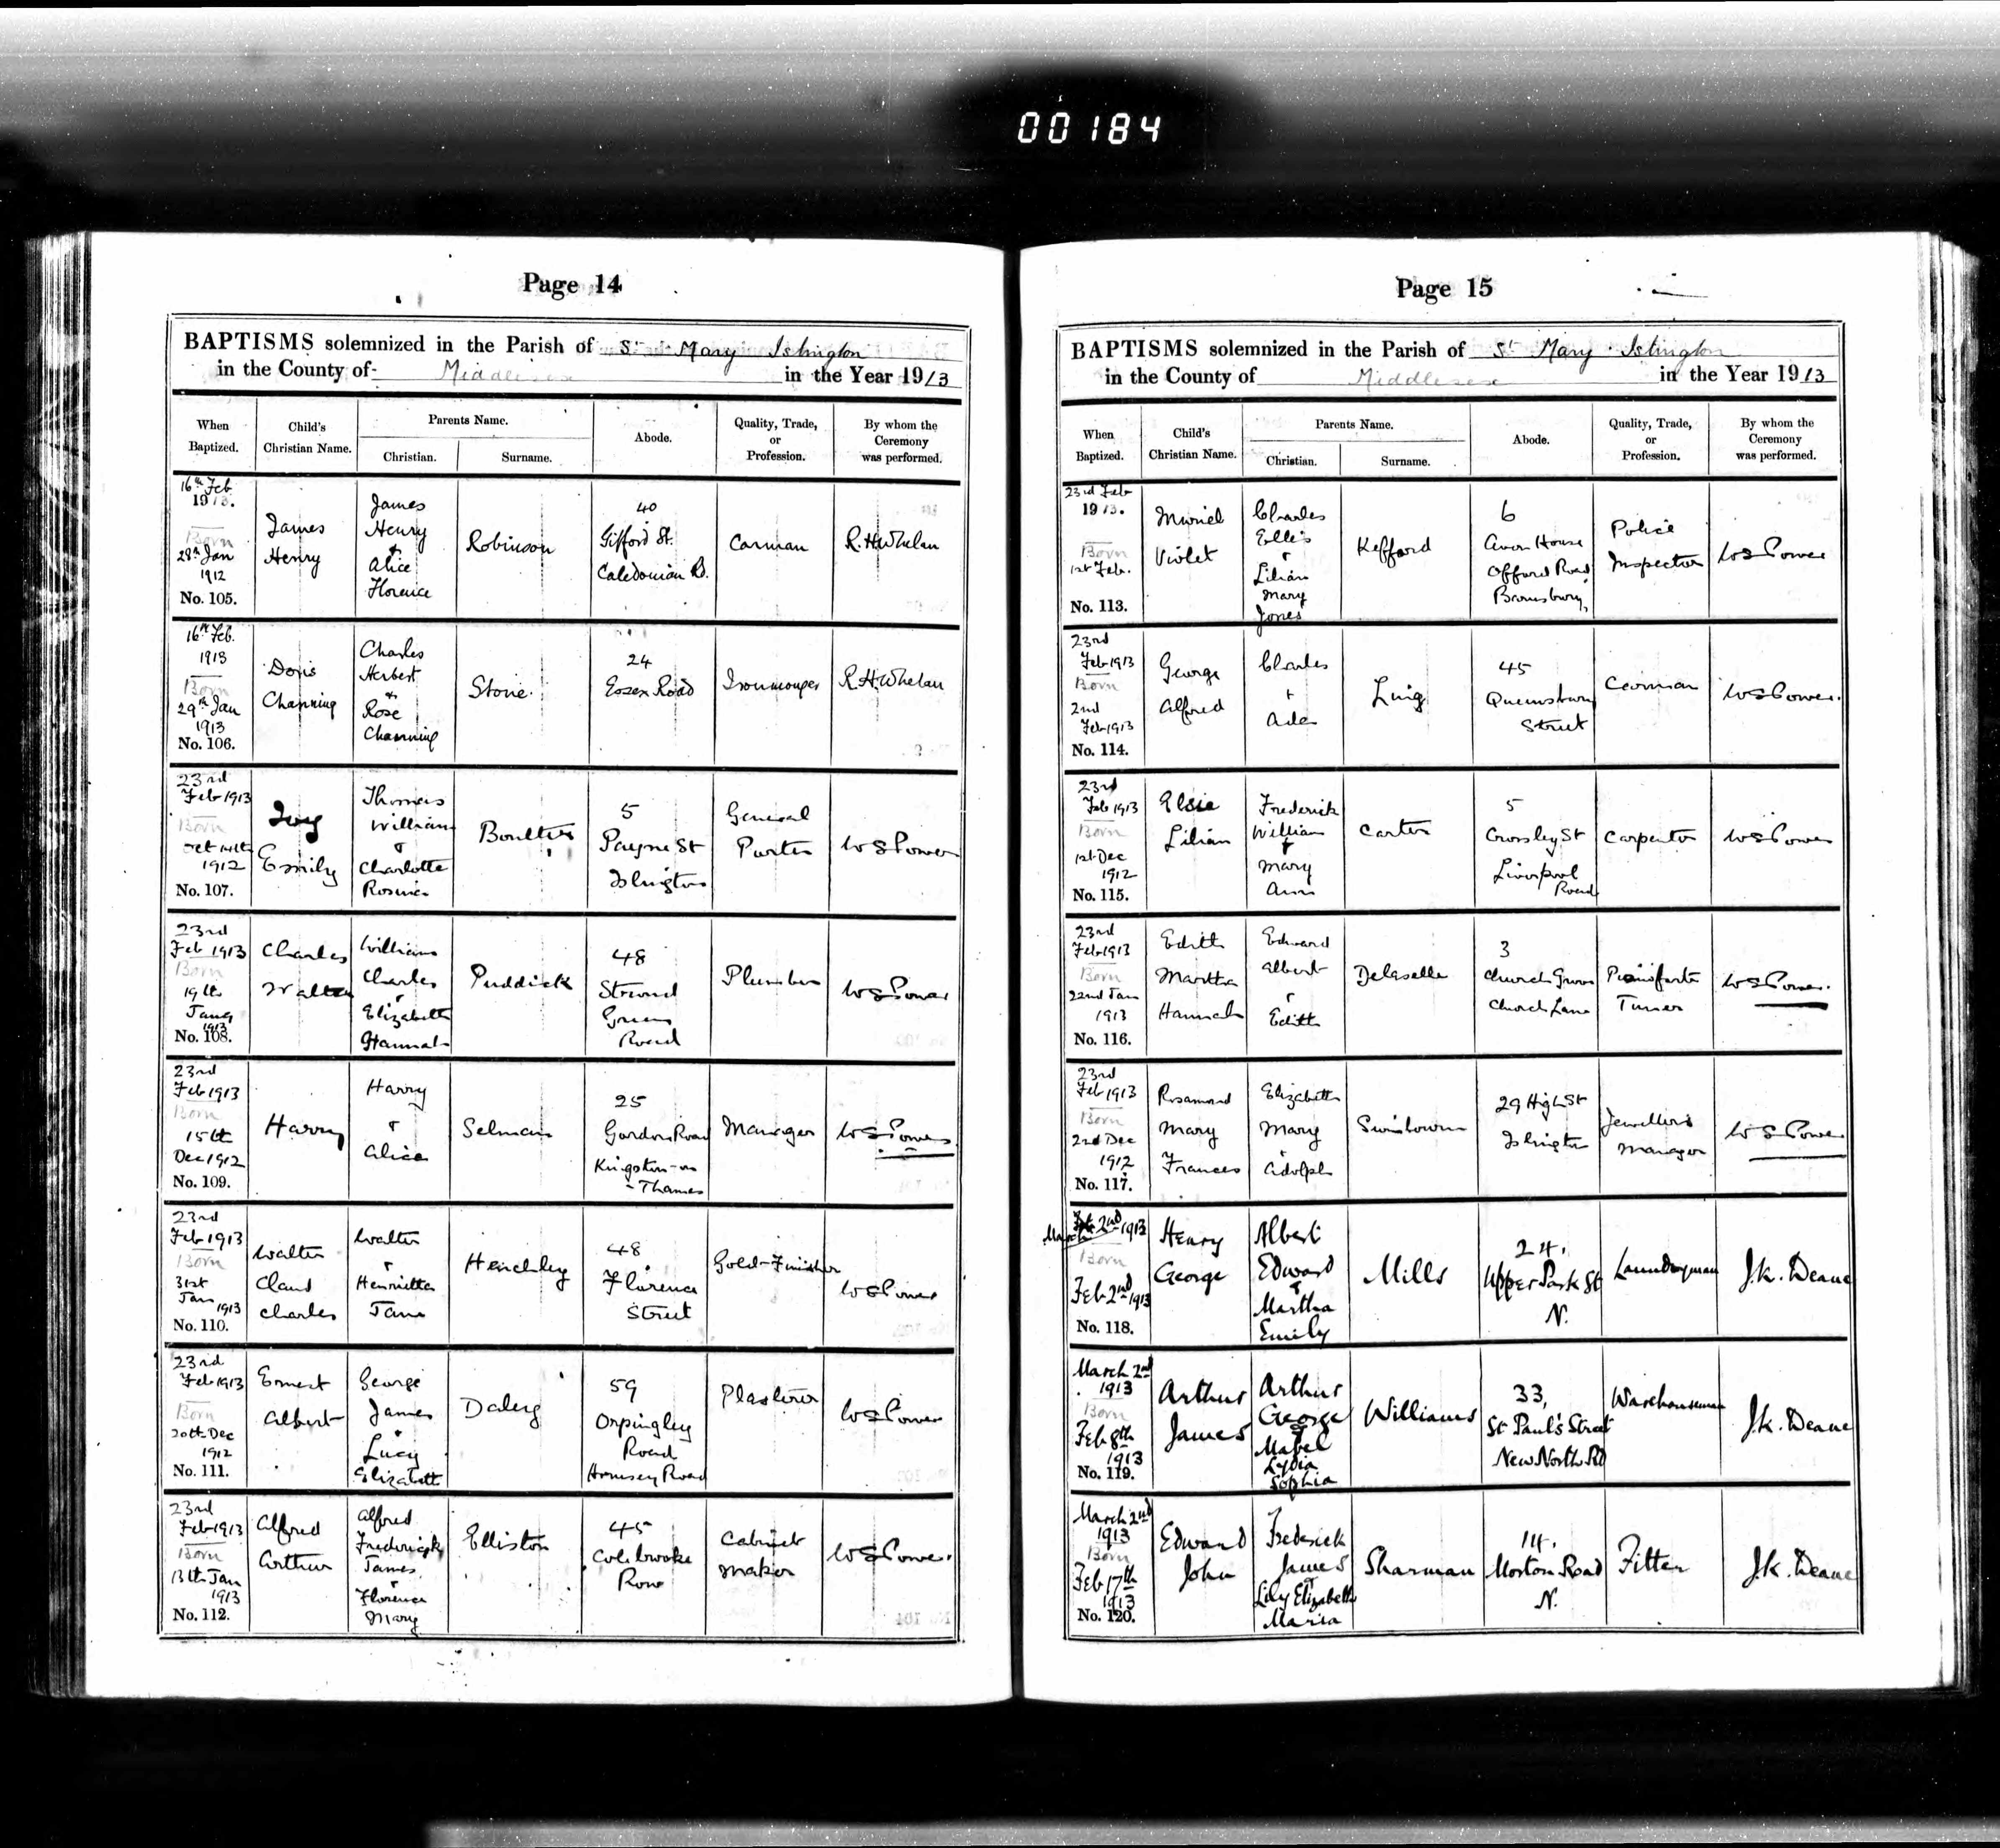 00184
Page 14
BAPTISMS solemnized in the Parish of St Mary Islington
in the County of Middlesex in the Year 1913
When Baptized.
Child's Christian Name.
Parents Name.
Christian.
Surname.
Abode.
Quality, Trade, or Profession.
By whom the Ceremony was performed.
16th Feb 1913. Born 28th Jan 1912 No. 105.
James Henry
James Henry + Alice Florence
Robinson
40 Gifford St. Caledonian Rd.
Carman
R.H.Whelan
16th Feb. 1913 Born 29th Jan 1913 No. 106.
Doris Channing
Charles Herbert + Rose Channing
Stone
24 Essex Road
Ironmonger
R.H.Whelan
23rd Feb 1913 Born Oct 1912 No. 107.
Ivy Emily
Thomas William + Charlotte Rosina
Boulter
5 Payne St Islington
General Porter
W S Power
23rd Feb 1913 Born 19th Jany 1913 No. 108.
Charles Walter
William Charles + Elizabeth Hannah
Puddick
48 Stroud Green Road
Plumber
W S Power
23rd Feb 1913 Born 15th Dec 1912 No. 109.
Harry
Harry + Alice
Selman
25 Gordon Road Kingston-on-Thames
Manager
W S Power
23rd Feb 1913 Born 31st Jan 1913 No. 110.
Walter Claud Charles
Walter + Henrietta Jane
Henchley
48 Florence Street
Gold-Finisher
W S Power
23rd Feb 1913 Born 20th Dec 1912 No. 111.
Ernest Albert
George James + Lucy Elizabeth
Daley
59 Orpingley Road Hornsey Road
Plasterer
W S Power
23rd Feb 1913 Born 13th Jan 1913 No. 112.
Alfred Arthur
Alfred Frederick James + Florence Mary
Elliston
45 Colebrooke Row
Cabinet Maker
W S Power
Page 15
BAPTISMS solemnized in the Parish of St Mary Islington
in the County of Middlesex in the Year 1913
When Baptized.
Child's Christian Name.
Parents Name.
Christian.
Surname.
Abode.
Quality, Trade, or Profession.
By whom the Ceremony was performed.
23rd Feb 1913. Born 1st Feb. No. 113.
Muriel Violet
Charles Ellis + Lilian Mary Jones
Kefford
6 Avon House Offord Road Barnsbury,
Police Inspector
W S Power
23rd Feb 1913 Born 2nd Feb 1913 No. 114.
George Alfred
Charles + Ada
Ling
45 Queensbury Street
Carman
W S Power.
23rd Feb 1913 Born 1st Dec 1912 No. 115.
Elsie Lilian
Frederick William + Mary Ann
Carter
5 Crossley St Liverpool Road
Carpenter
W S Power
23rd Feb 1913 Born 22nd Jan 1913 No. 116.
Edith Martha Hannah
Edward Albert + Edith
Delaselle
3 Church Grove Church Lane
Pianoforte Tuner
W S Power.
23rd Feb 1913 Born 2nd Dec 1912 No. 117.
Rosamond Mary Frances
Elizabeth Mary + Adolph
29 High St Islington
Jeweller's Manager
W S Power
March 2nd 1913 Born Feb 2nd 1913 No. 118.
Henry George
Albert Edward + Martha Emily
Mills
24, Upper Park St N.
Laundryman
J.K. Deane
March 2nd 1913 Born Feb 8th 1913 No. 119.
Arthur James
Arthur George + Mabel Lydia Sophia
Williams
33, St Paul's Street New North Rd
Warehouseman
J.K. Deane
March 2nd 1913 Born Feb 17th 1913 No. 120.
Edward John
Frederick James + Lily Elizabeth Maria
Sharman
14. Morton Road N.
Fitter
J.K. Deane